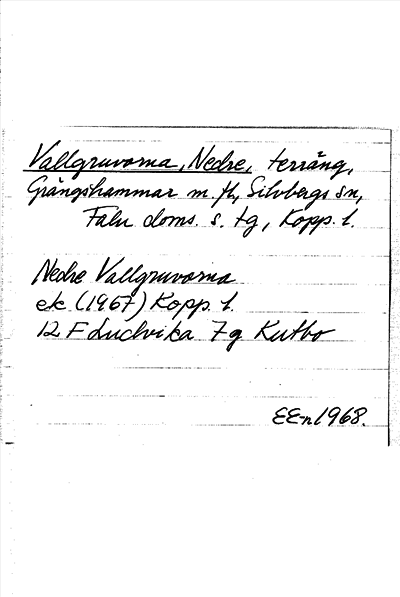 Vallgruvorna, Nedre, terräng,
Grängshammar m. fl., Silvbergs sn,
Falu doms. s. tg, Kopp. l.
Nedre Vallgruvorna
ek (1967) Kopp. l.
12 F Ludvika 7 g Kutbo
EE-n 1968.